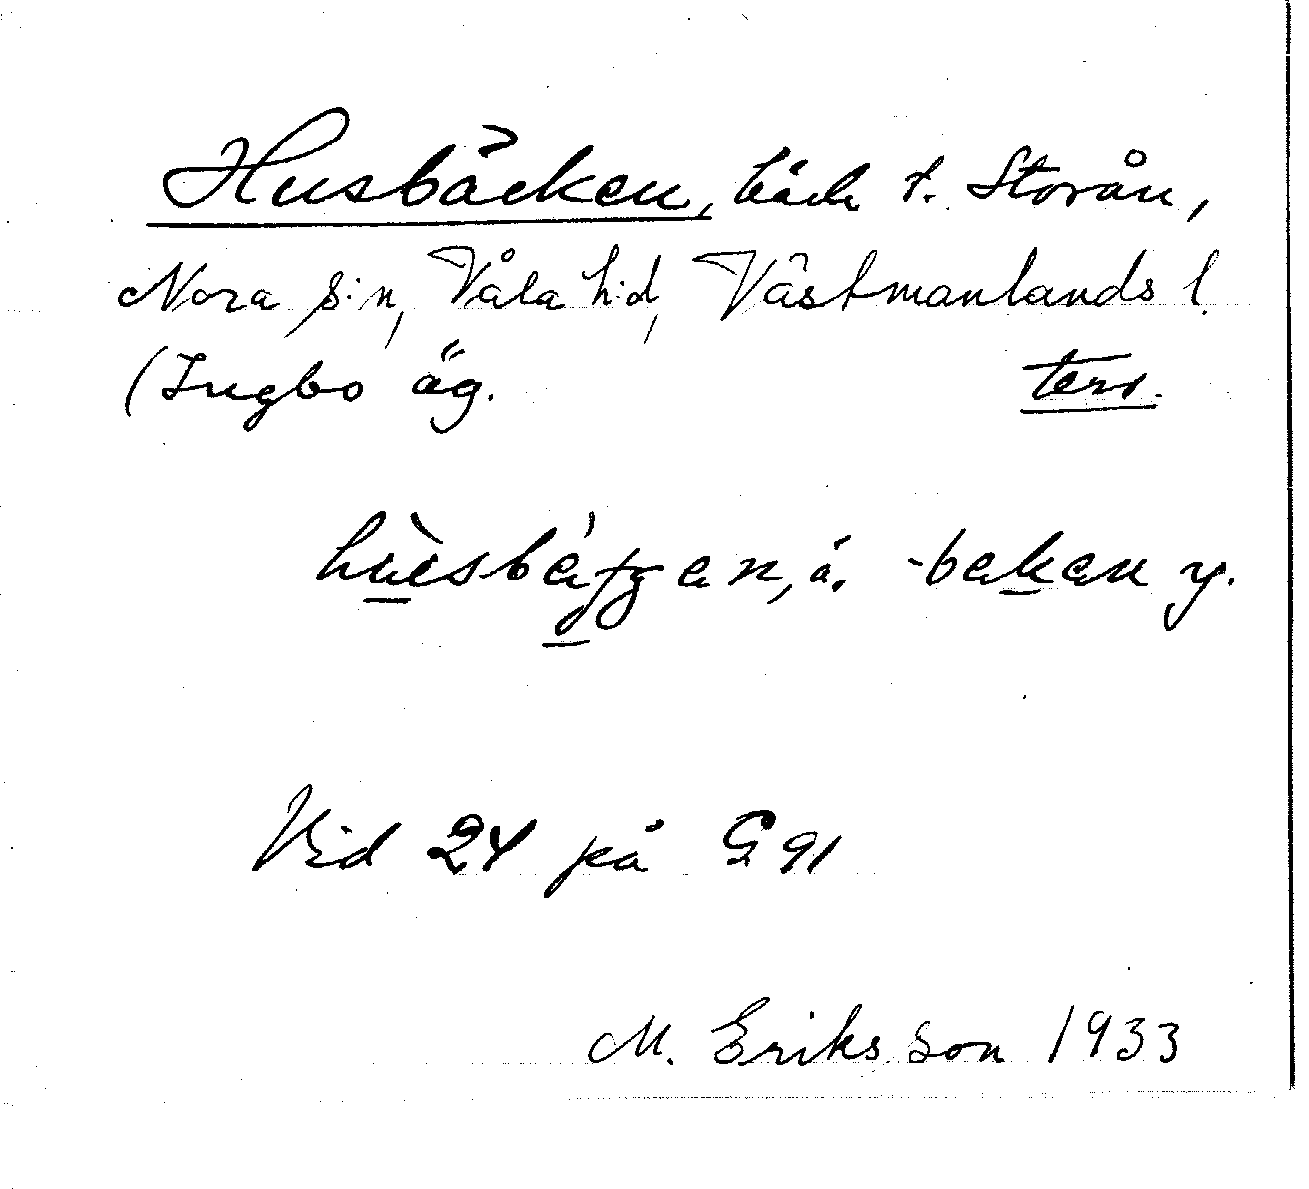 Husbäcken, bäck t. Storån,
Nora s:n, Våla h:d, Västmanlands l.
(Ingbo äg. terr.
hùsbátjen, ä. -beken y.
Vid 24 på G 91
M. Eriksson 1933